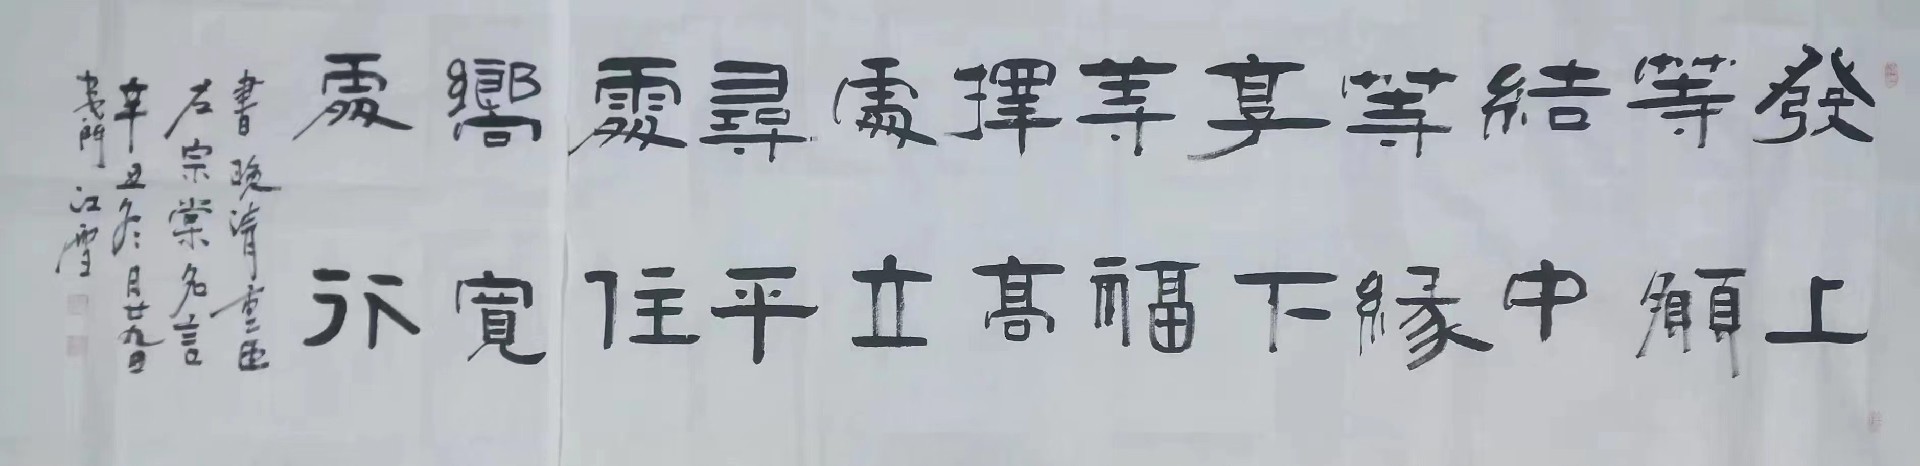 發上
等願
結中
等緣
享下
等福
擇高
處立
尋平
處住
嚮寬
處行
書晚清重臣
左宗棠名言
辛丑冬月廿九日
夷門江雪